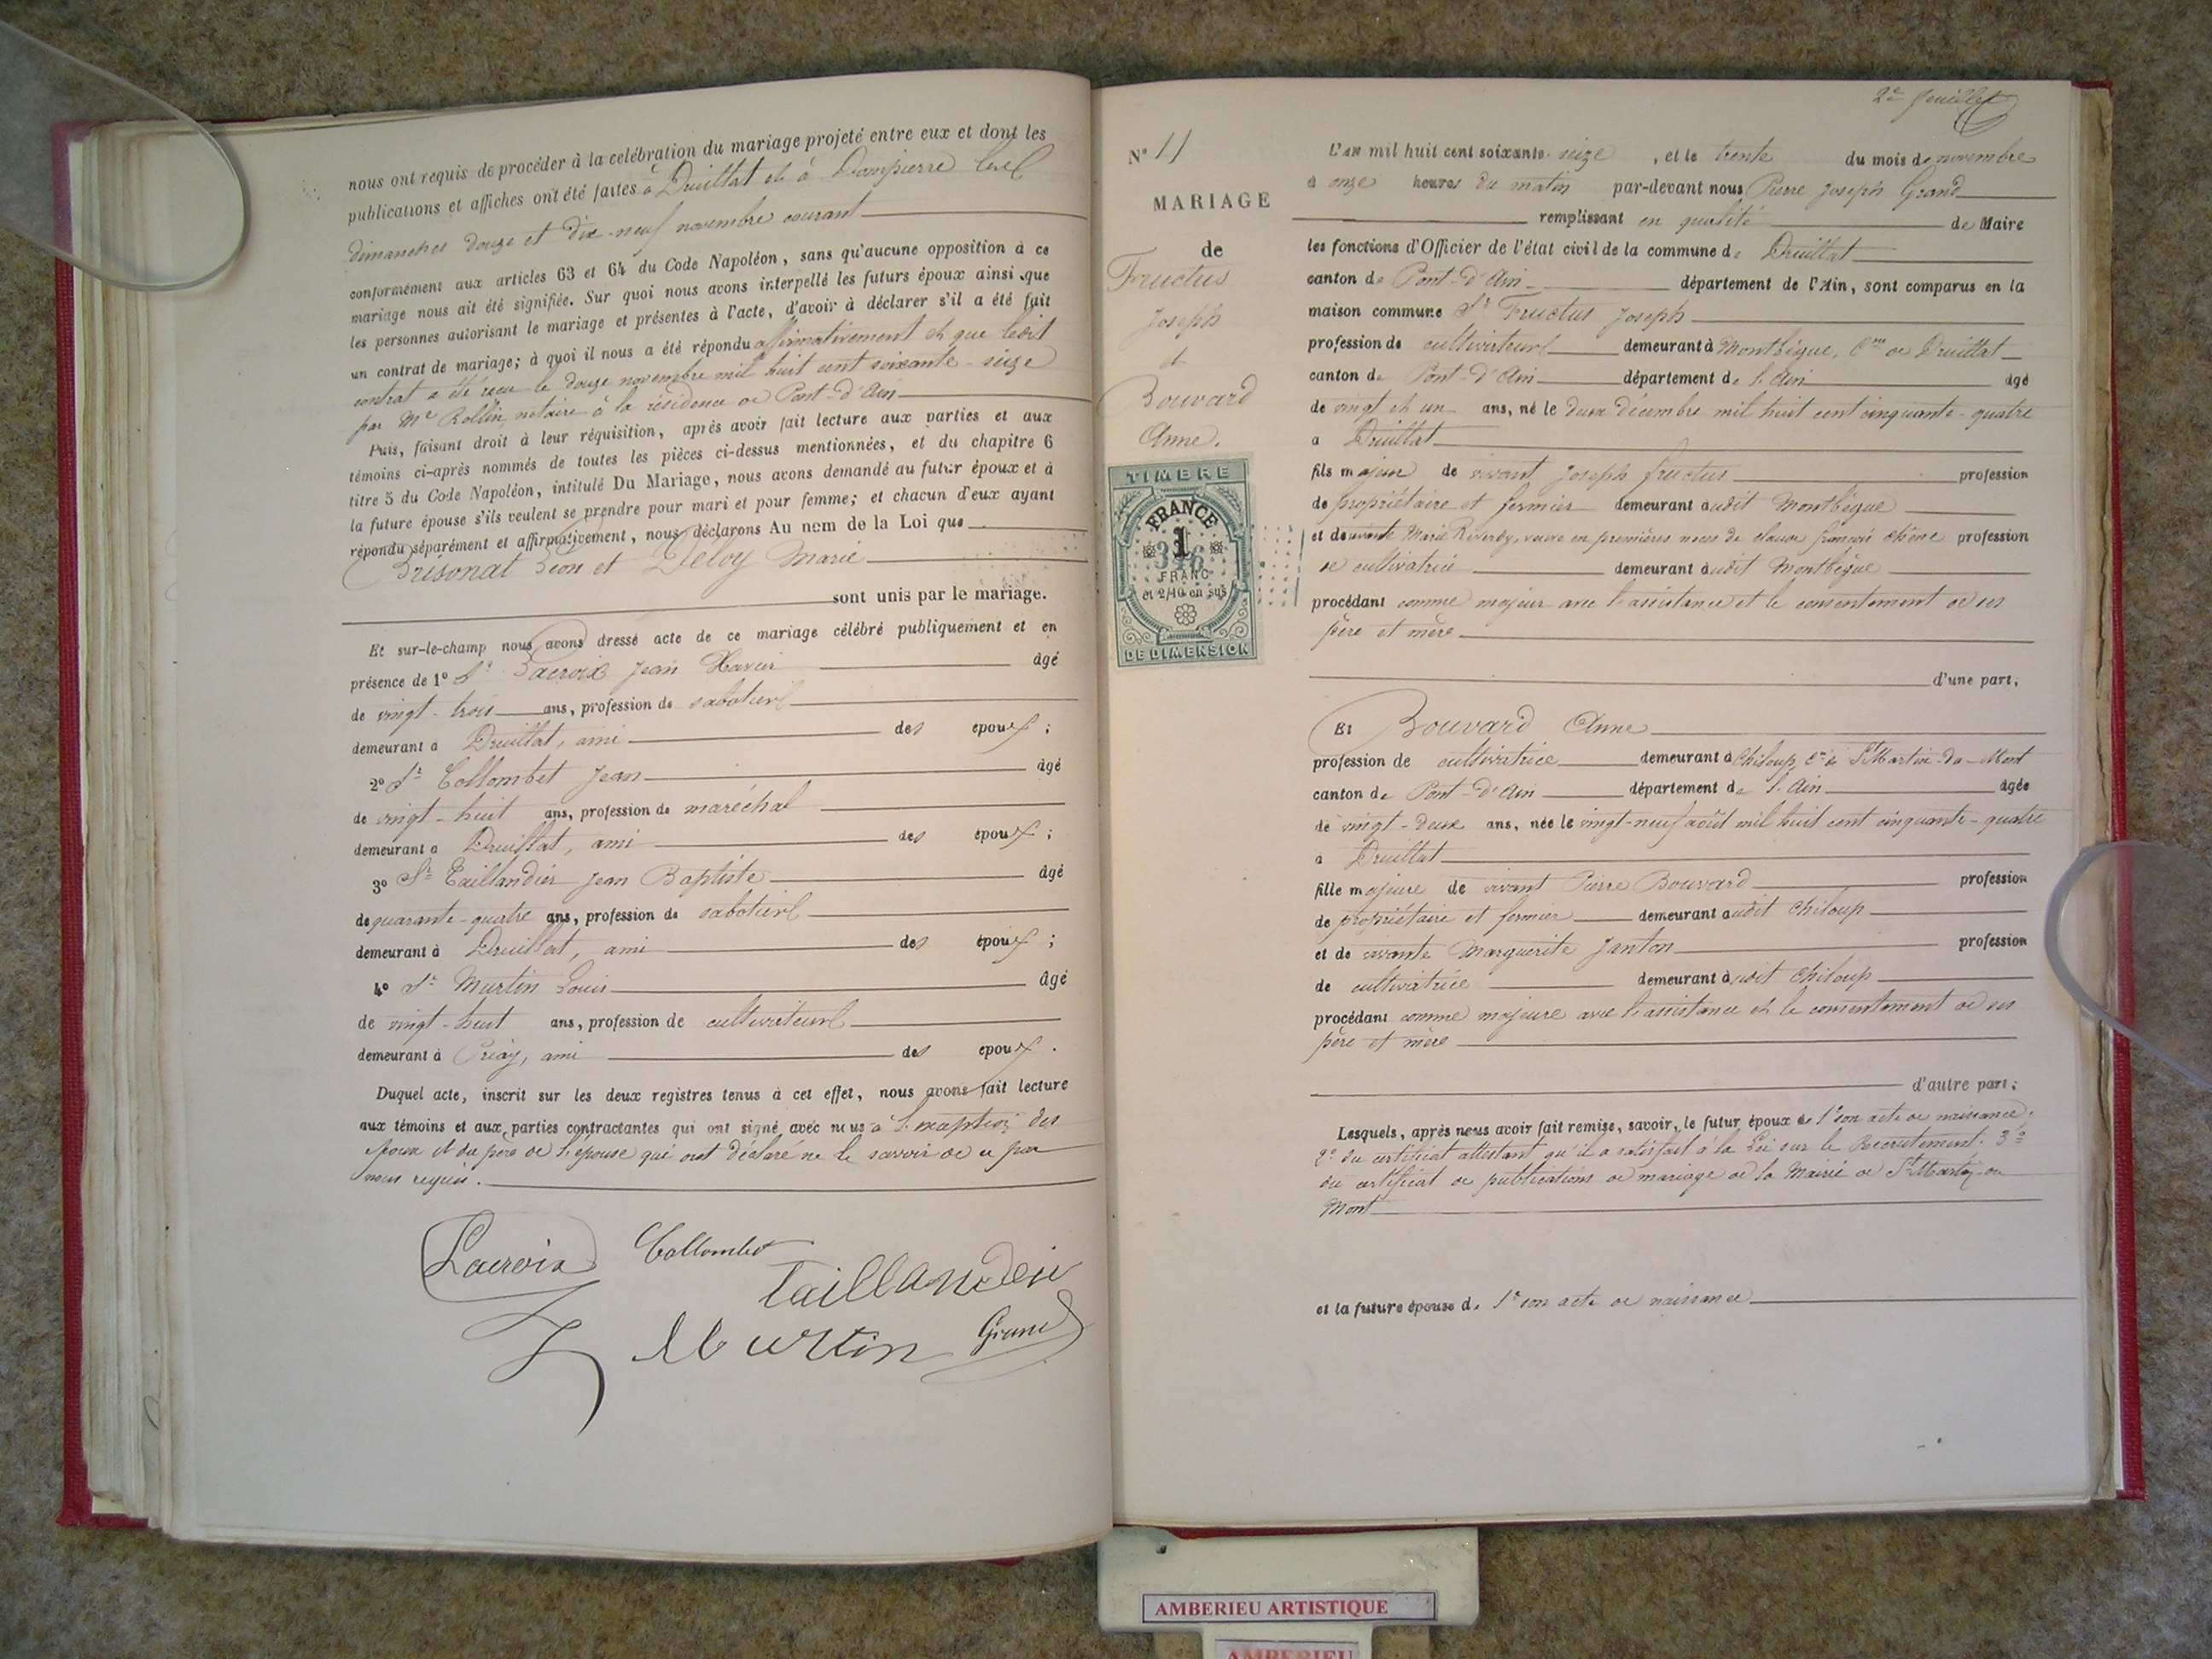 nous ont requis de procéder à la celébration du mariage projeté entre eux et dont les
publications et affiches ont été faites à Druillat et à Dompierre les
dimanches douze et dix-neuf novembre courant
conformément aux articles 63 et 64 du Code Napoléon, sans qu'aucune opposition à ce
mariage nous ait été signifiée. Sur quoi nous avons interpellé les futurs époux ainsi que
les personnes autorisant le mariage et présentes à l'acte, d'avoir à déclarer s'il a été fait
un contrat de mariage; à quoi il nous a été répondu affirmativement et que ledit
contrat a été reçu le douze novembre mil huit cent soixante-seize
par Me Rollin, notaire à la résidence de Pont-d'Ain
Puis, faisant droit à leur réquisition, après avoir fait lecture aux parties et aux
témoins ci-après nommés de toutes les pièces ci-dessus mentionnées, et du chapitre 6
titre 5 du Code Napoléon, intitulé Du Mariage, nous avons demandé au futur époux et à
la future épouse s'ils veulent se prendre pour mari et pour femme; et chacun d'eux ayant
répondu séparément et affirmativement, nous déclarons Au nom de la Loi que
Brisonat Léon et Deloy Marie
sont unis par le mariage.
Et sur-le-champ nous avons dressé acte de ce mariage célébré publiquement et en
présence de 1° Sr Lacroix Jean Xavier âgé
de vingt-trois ans, profession de sabotier
demeurant à Druillat, ami des époux ;
2° Sr Collombet Jean âgé
de vingt-huit ans, profession de maréchal
demeurant à Druillat, ami des époux ;
3° Sr Taillandier Jean Baptiste âgé
de quarante-quatre ans, profession de sabotier
demeurant à Druillat, ami des époux ;
4° Sr Martin Louis âgé
de vingt-huit ans, profession de cultivateur
demeurant à Priay, ami des époux .
Duquel acte, inscrit sur les deux registres tenus à cet effet, nous avons fait lecture
aux témoins et aux parties contractantes qui ont signé avec nous à l'exception des
époux et du père de l'épouse qui ont déclaré ne le savoir de ce par
nous requis.
Lacroix Collombet
Taillandier
Martin Grand
2e feuillet
N° 11
MARIAGE
de
Fructus
Joseph
et
Bouvard
Anne.
TIMBRE
FRANCE
1
FRANC
et 2/10 en sus
DE DIMENSION
L'an mil huit cent soixante-seize, et le trente du mois de novembre
à onze heures du matin par-devant nous Pierre Joseph Grand
remplissant en qualité de Maire
les fonctions d'Officier de l'état civil de la commune de Druillat
canton de Pont-d'Ain département de l'Ain, sont comparus en la
maison commune Sr Fructus Joseph
profession de cultivateur demeurant à Montbègue, Cne de Druillat
canton de Pont-d'Ain département de l'Ain âgé
de vingt et un ans, né le deux décembre mil huit cent cinquante-quatre
à Druillat
fils majeur de vivant Joseph Fructus profession
de propriétaire et fermier demeurant audit Montbègue
et de vivante Marie veuve en premières noces de françois profession
de cultivatrice demeurant audit Montbègue
procédant comme majeur avec l'assistance et le consentement de ses
père et mère
d'une part;
Et Bouvard Anne
profession de cultivatrice demeurant à Chiloup, Cne de St Martin-du-Mont
canton de Pont-d'Ain département de l'Ain âgée
de vingt-deux ans, née le vingt-neuf août mil huit cent cinquante-quatre
à Druillat
fille majeure de vivant Pierre Bouvard profession
de propriétaire et fermier demeurant audit Chiloup
et de vivante Marguerite Janton profession
de cultivatrice demeurant audit Chiloup
procédant comme majeure avec l'assistance et le consentement de ses
père et mère
d'autre part;
Lesquels, après nous avoir fait remise, savoir, le futur époux de 1° son acte de naissance.
2° du certificat attestant qu'il a satisfait à la Loi sur le Recrutement. 3°
du certificat de publications de mariage de la Mairie de St Martin-du
Mont
et la future épouse de 1° son acte de naissance
AMBERIEU ARTISTIQUE
AMBERIEU